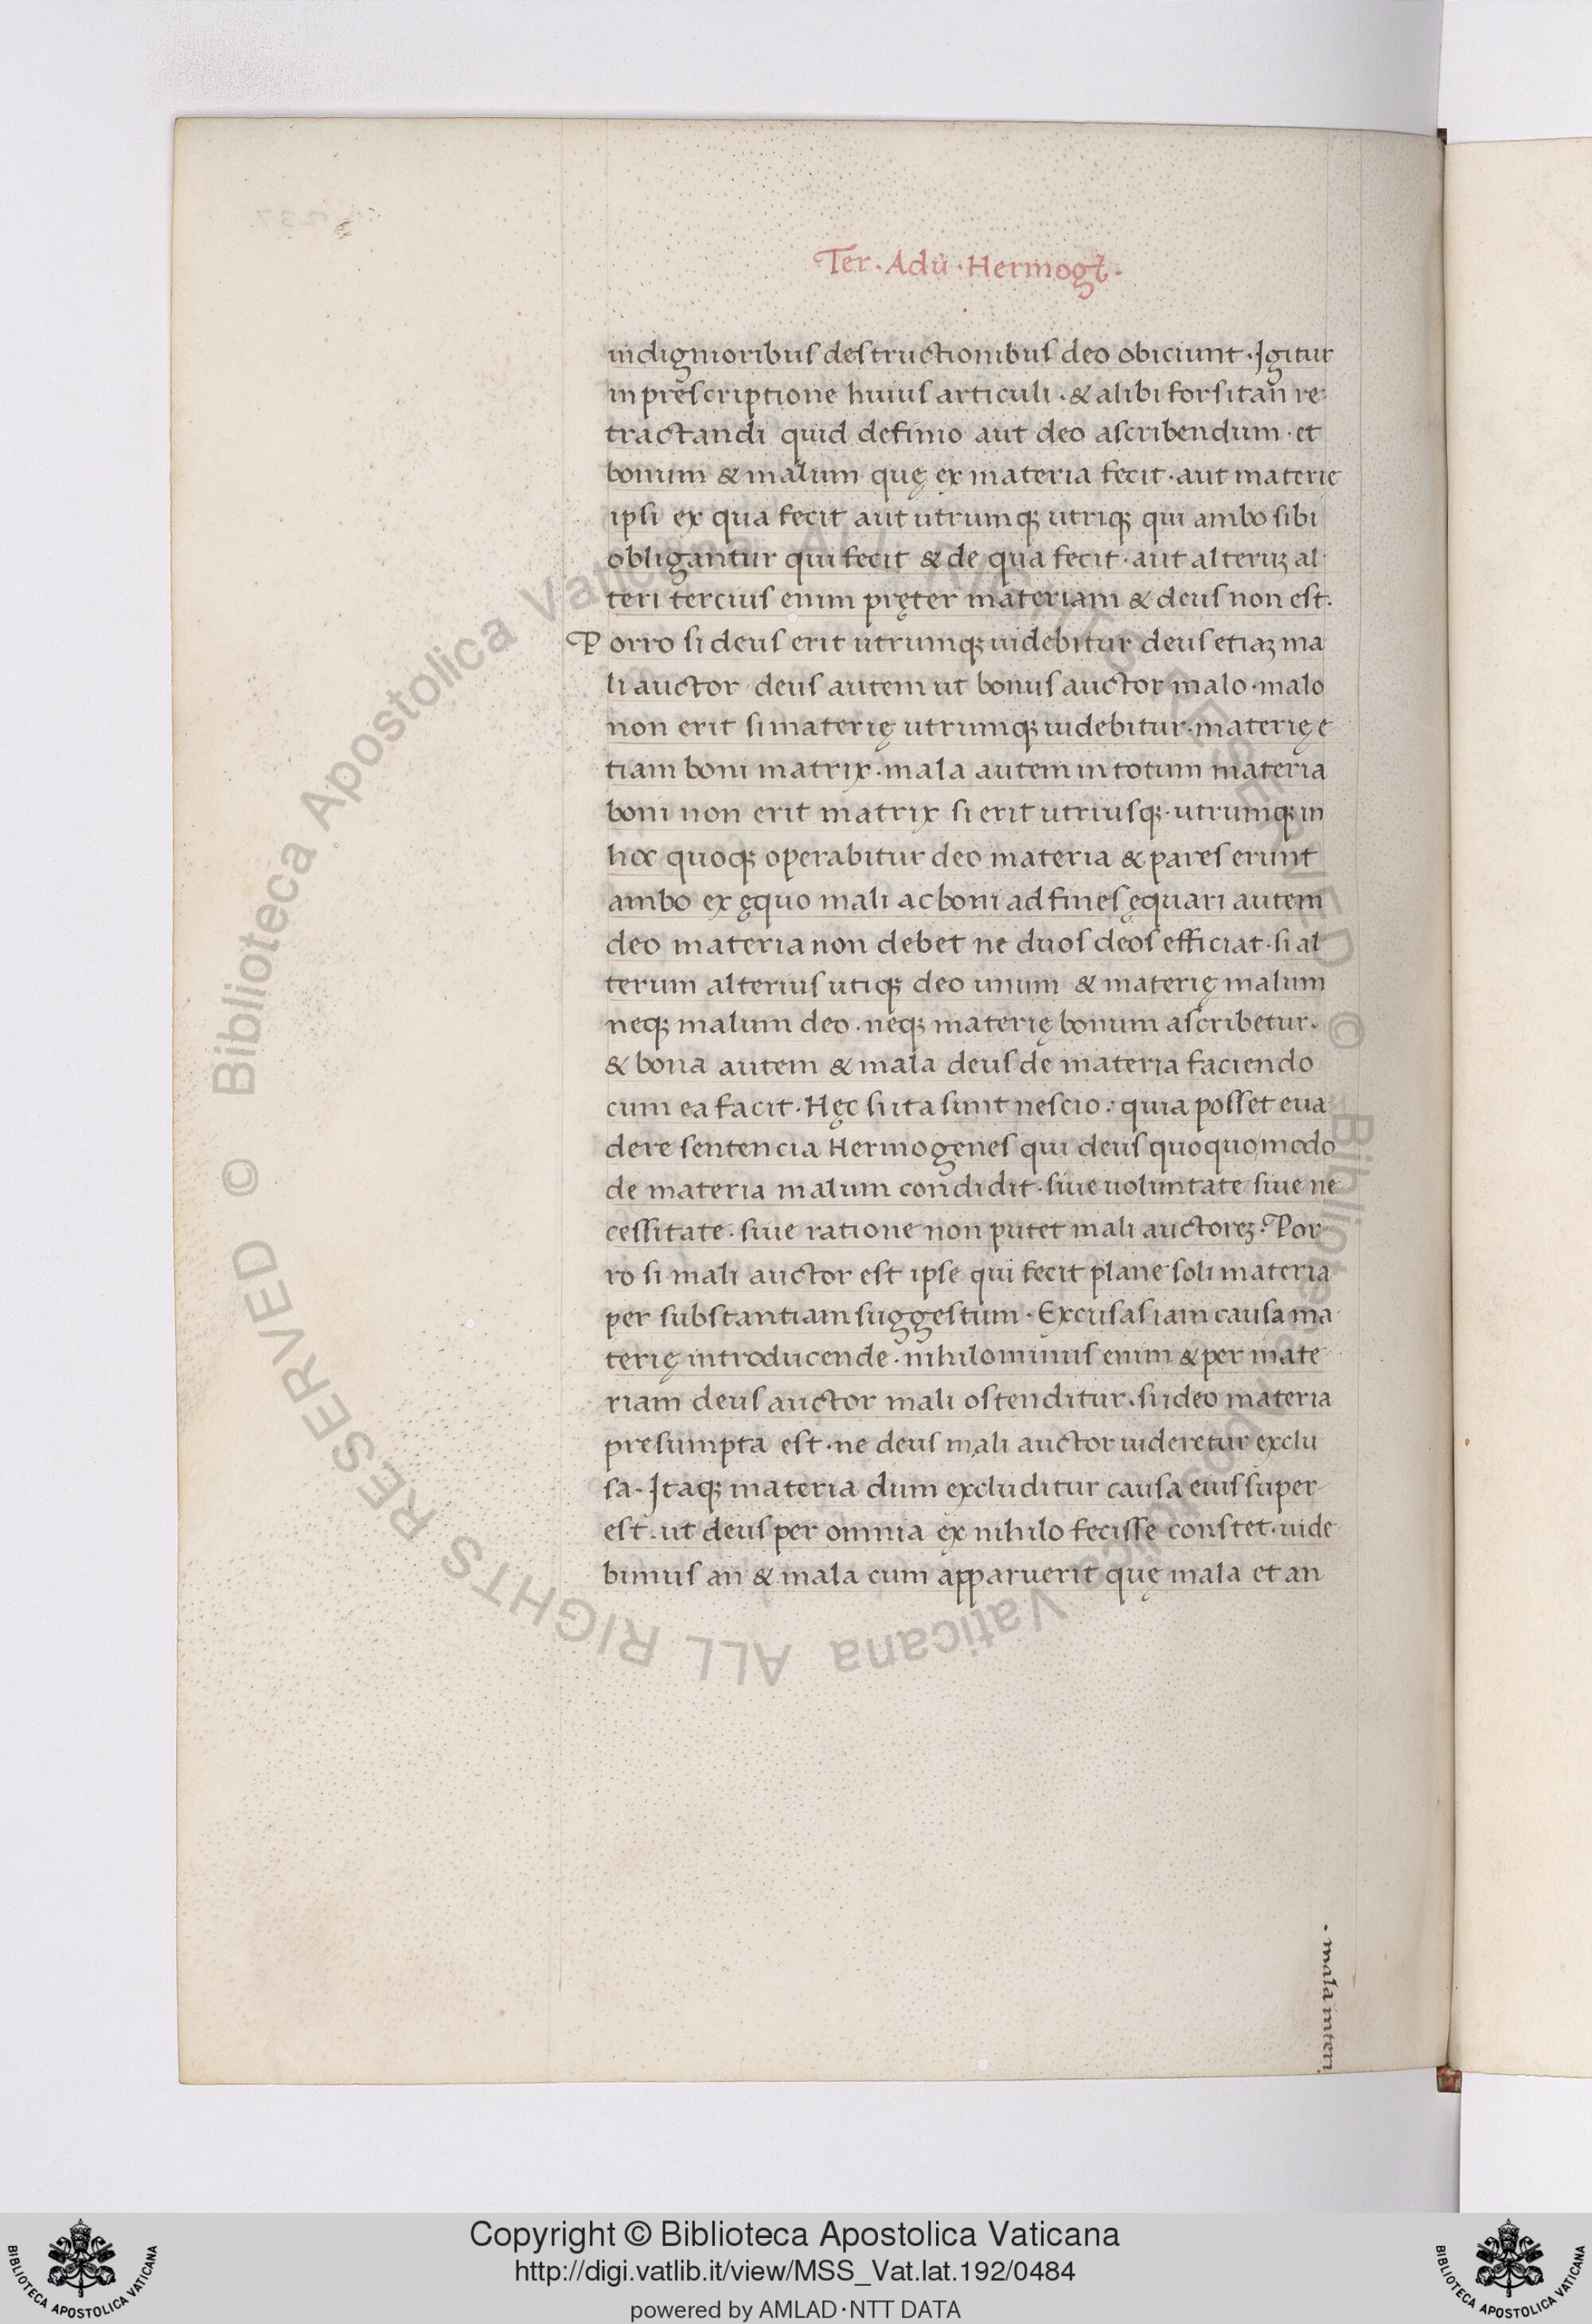 Ter · Adū · Hermogē ·
indignioribus destructionibus deo obiciunt · Igitur
in prescriptione huius articuli · & alibi forsitan re
tractandi quid definio aut deo ascribendum · et
bonum & malum quę ex materia fecit · aut materię
ipsi ex qua fecit aut utrumq; utriq; qui ambo sibi
obligantur qui fecit & de qua fecit · aut alteruʒ al
teri tercius enim pręter materiam & deus non est.
Porro si deus erit utrumq; uidebitur deus etiaʒ ma
li auctor · deus autem ut bonus auctor malo · malo
non erit si materię utrumq; uidebitur · materię e
tiam boni matrix · mala autem in totum materia
boni non erit matrix si erit utriusq; · utrumq; in
hoc quoq; operabitur deo materia & pares erunt
ambo ex ęquo mali ac boni ad fines ęquari autem
deo materia non debet ne duos deos efficiat · si al
terum alterius utiq; deo unum & materię malum
neq; malum deo · neq; materię bonum ascribetur.
& bona autem & mala deus de materia faciendo
cum ea facit · Hęc si ita sunt nescio : quia posset eua
dere sentencia Hermogenes qui deus quoquomodo
de materia malum condidit · siue uoluntate siue ne
cessitate · siue ratione non putet mali auctoreʒ · Por
ro si mali auctor est ipse qui fecit plane soli materia
per substantiam suggestum · Excusas iam causa ma
terię introducende · nihilominus enim & per mate
riam deus auctor mali ostenditur · si ideo materia
presumpta est · ne deus mali auctor uideretur exclu
sa · Itaq; materia dum excluditur causa eius super
est · ut deus per omnia ex nihilo fecisse constet · uide
bimus an & mala cum apparuerit quę mala et an
· mala interi
© Biblioteca Apostolica Vaticana ALL RIGHTS RESERVED © Biblioteca Apostolica Vaticana ALL RIGHTS RESERVED
Copyright © Biblioteca Apostolica Vaticana
http://digi.vatlib.it/view/MSS_Vat.lat.192/0484
powered by AMLAD·NTT DATA
BIBLIOTECA APOSTOLICA VATICANA
BIBLIOTECA APOSTOLICA VATICANA